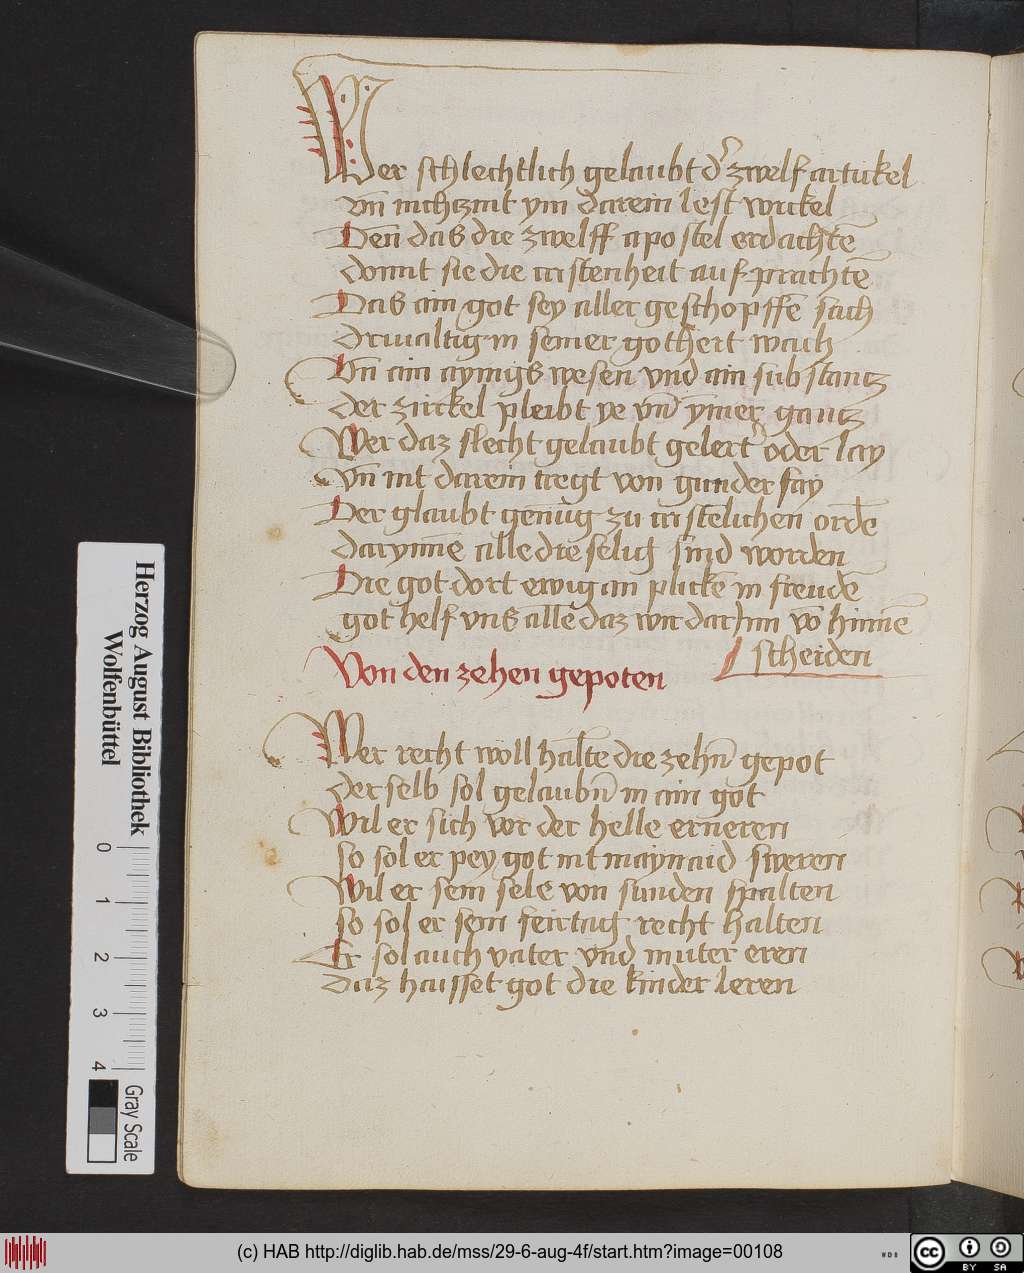 Wer schlechtlich gelaubt d' zwelf artickel
vn̄ nichcznit ym darein lest wickel
Den̄ das die zwelff apostel erdachtē
domit sie die cristenheit auf prachtē
Das ain got sey aller geschopffē sach
driualtig in seiner gotheit wach
Vn̄ ain aynigs wesen vnd ain substantz
der zirckel pleibt ye vn̄ ym̄er gantz
Wer daz slecht gelaubt gelert oder lay
vn̄ nit darein tregt von gunder fay
Der glaubt genug zu cristelichen ordē
darynnē alle die selig sind worden
Die got dort ewig an plickē in freudē
got helf vns alle daz wir dar hin vō hinnē
scheiden
Von den zehen gepoten
Wer recht woll haltē die zehn̄ gepot
der selb sol gelaubn̄ in ain got
Wil er sich vor der helle erneren
so sol er pey got nit maynaid sweren
Wil er sein sele von sunden spalten
so sol er sein feirtag recht halten
Er sol auch vater vnd muter eren
daz haisset got die kinder leren
Herzog August Bibliothek
Wolfenbüttel
0 1 2 3 4
Gray Scale
(c) HAB http://diglib.hab.de/mss/29-6-aug-4f/start.htm?image=00108
WDB
cc BY SA